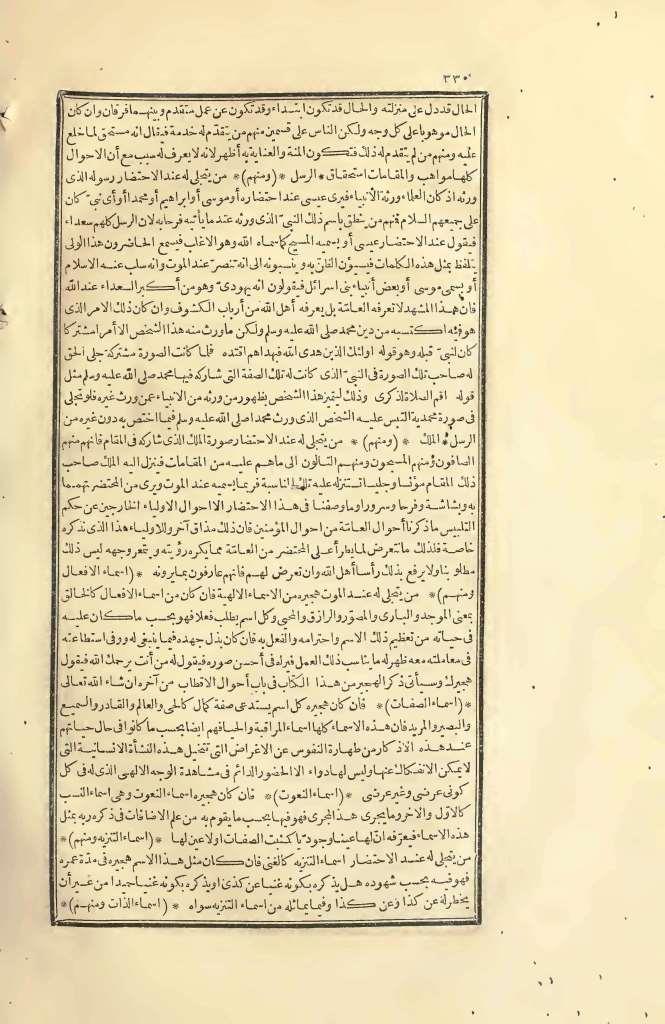 ٣٣٠
الحال قد دل على منزلته والحال قد تكون ابتداء وقد تكون عن عمل متقدم وبينهما فرقان وان كان
الحال موهوبا على كل وجه ولكن الناس على قسمين منهم من يتقدم له خدمة فيقال انه مستحق لما خلع
عليه ومنهم من لم يتقدم له ذلك فتكون المنة والعناية به أظهر لانه لا يعرف له سبب مع أن الاحوال
كلها مواهب والمقامات استحقاق * الرسل * (ومنهم) * من يتجلى له عند الاحتضار رسوله الذى
ورثه اذ كان العلماء ورثة الانبياء فيرى عيسى عند احتضاره أو موسى أو ابراهيم أو محمدا أو أى نبى كان
على جميعهم السلام فمنهم من ينطق باسم ذلك النبى الذى ورثه عندما يأتيه فرحا به لان الرسل كلهم سعداء
فيقول عند الاحتضار عيسى أو يسميه المسيح كما سماه الله وهو الاغلب فيسمع الحاضرون هذا الولى
يتلفظ بمثل هذه الكلمات فيسيؤن الظن به وينسبونه الى انه تنصر عند الموت وانه سلب عنه الاسلام
أو يسمى موسى أو بعض أنبياء بنى اسرائيل فيقولون انه يهودى وهو من أكبر السعداء عند الله
فان هذا المشهد لا تعرفه العامة بل يعرفه أهل الله من أرباب الكشوف وان كان ذلك الامر الذى
هو فيه اكتسبه من دين محمد صلى الله عليه وسلم ولكن ما ورث منه هذا الشخص الا أمرا مشتركا
كان لنبى قبله وهو قوله اولئك الذين هدى الله فبهداهم اقتده فلما كانت الصورة مشتركة جلى الحق
له صاحب تلك الصورة فى النبى الذى كانت له تلك الصفة التى شاركه فيها محمد صلى الله عليه وسلم مثل
قوله اقم الصلاة لذكرى وذلك ليتميز هذا الشخص بظهور من ورثه من الانبياء عمن ورث غيره فلو تجلى
فى صورة محمدية التبس عليه الشخص الذى ورث محمدا صلى الله عليه وسلم فيما اختص به دون غيره من
الرسل * الملك * (ومنهم) * من يتجلى له عند الاحتضار صورة الملك الذى شاركه فى المقام فانهم منهم
الصافون ومنهم المسبحون ومنهم التالون الى ما هم عليه من المقامات فينزل اليه الملك صاحب
ذلك المقام مؤنسا وجليسا تستنزله عليه تلك المناسبة فربما يسميه عند الموت ويرى من المحتضر تهمما
به وبشاشة وفرحا وسرورا وما وصفنا فى هذا الاحتضار الا احوال الاولياء الخارجين عن حكم
التلبيس ما ذكرنا أحوال العامة من احوال المؤمنين فان ذلك مذاق آخر وللاولياء هذا الذى نذكره
خاصة فلذلك ما نتعرض لما يطرأ على المحتضر من العامة مما يكره رؤيته ويتمعر وجهه ليس ذلك
مطلوبنا ولا يرفع بذلك رأسا أهل الله وان تعرض لهم فانهم عارفون بما يرونه * (اسماء الافعال
ومنهم) * من يتجلى له عند الموت هجيره من الاسماء الالهية فان كان من اسماء الافعال كالخالق
بمعنى الموجد والبارى والمصور والرازق والمحيى وكل اسم يطلب فعلا فهو بحسب ما كان عليه
فى حياته من تعظيم ذلك الاسم واحترامه والفعل به فان كان بذل جهده فيما ينبغى له ووفى استطاعته
فى معاملته معه ظهر له ما يناسب ذلك العمل فيراه فى أحسن صوره فيقول له من أنت يرحمك الله فيقول
هجيرك وسيأتى ذكر الهجير من هذا الكتاب فى باب أحوال الاقطاب من آخره ان شاء الله تعالى
* (اسماء الصفات) * فان كان هجيره كل اسم يستدعى صفة كمال كالحى والعالم والقادر والسميع
والبصير والمريد فان هذه الاسماء كلها اسماء المراقبة والحيا فهم ايضا بحسب ما كانوا فى حال حياتهم
عند هذه الاذكار من طهارة النفوس عن الاغراض التى تتخيل هذه النشأة الانسانية التى
لا يمكن الانفكاك عنها وليس لها دواء الا الحضور الدائم فى مشاهدة الوجه الالهى الذى له فى كل
كونى عرضى وغير عرضى * (اسماء النعوت) * فان كان هجيره اسماء النعوت وهى اسماء النسب
كالاول والآخر وما يجرى هذا المجرى فهو فيها بحسب ما يقوم به من علم الاضافات فى ذكره ربه بمثل
هذه الاسماء فيعرفه ان لها عينا وجوديا كمثبت الصفات اولا عين لها * (اسماء التنزيه ومنهم) *
من يتجلى له عند الاحتضار اسماء التنزيه كالغنى فان كان مثل هذا الاسم هجيره فى مدة عمره
فهو فيه بحسب شهوده هل يذكره بكونه غنيا عن كذى او يذكره بكونه غنيا حميدا من غير أن
يخطر له عن كذا وعن كذا وفيما يماثله من اسماء التنزيه سواه * (اسماء الذات ومنهم) *